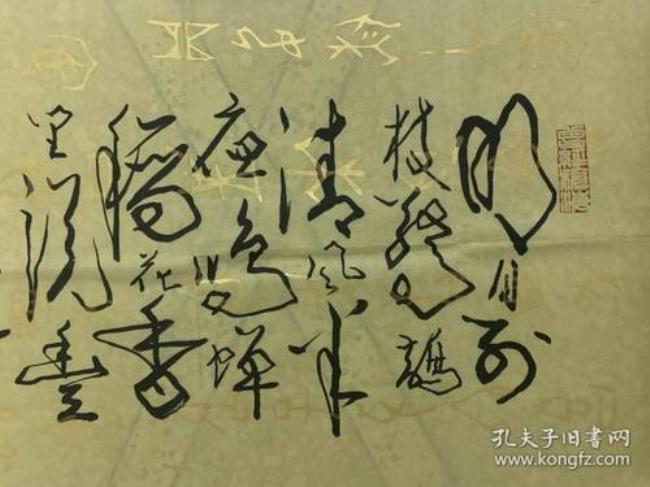 明月别
枝驚鵲
清风半
夜鸣蝉
稻花香
里说豐
孔夫子旧书网
www.kongfz.com